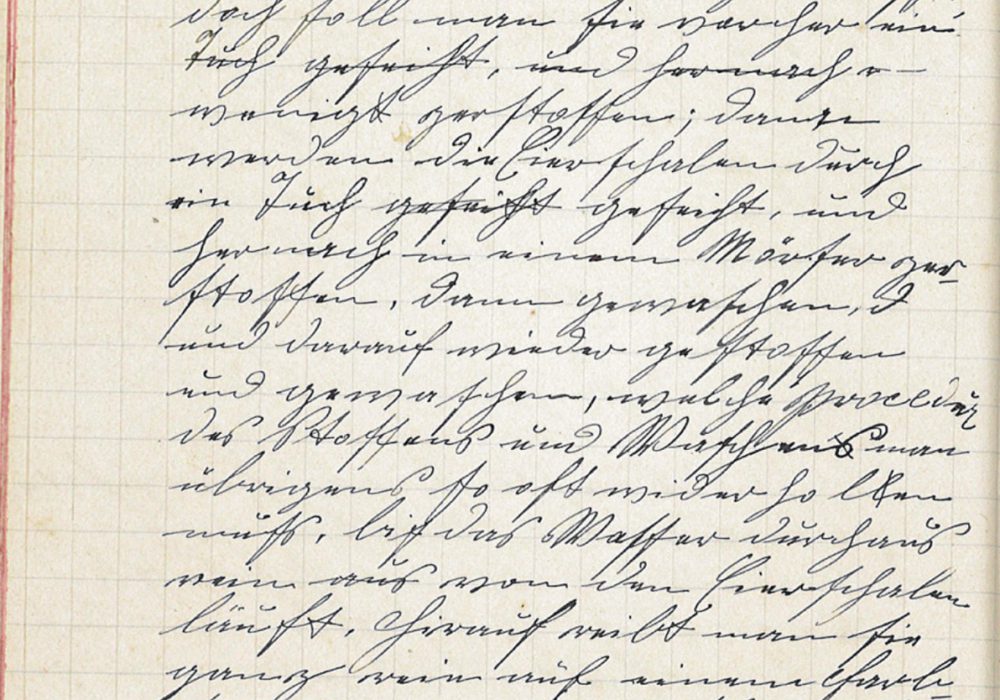 doch soll man sie vorher ein
Tuch geseiht, und hernach e-
wenigt zerstossen; dann
werden die Eierschalen durch
ein Tuch geseiht geseiht, und
hernach in einem Mörser zer-
stossen, dann gewaschen, d
und darauf wieder gestossen
und gewaschen, welche Procedur
des Stossens und Waschens man
übrigens so oft widerholten
muss, bis das Wasser durchaus
rein aus von den Eierschalen
läuft. Hirauf reibt man sie
ganz rein auf einem Farb